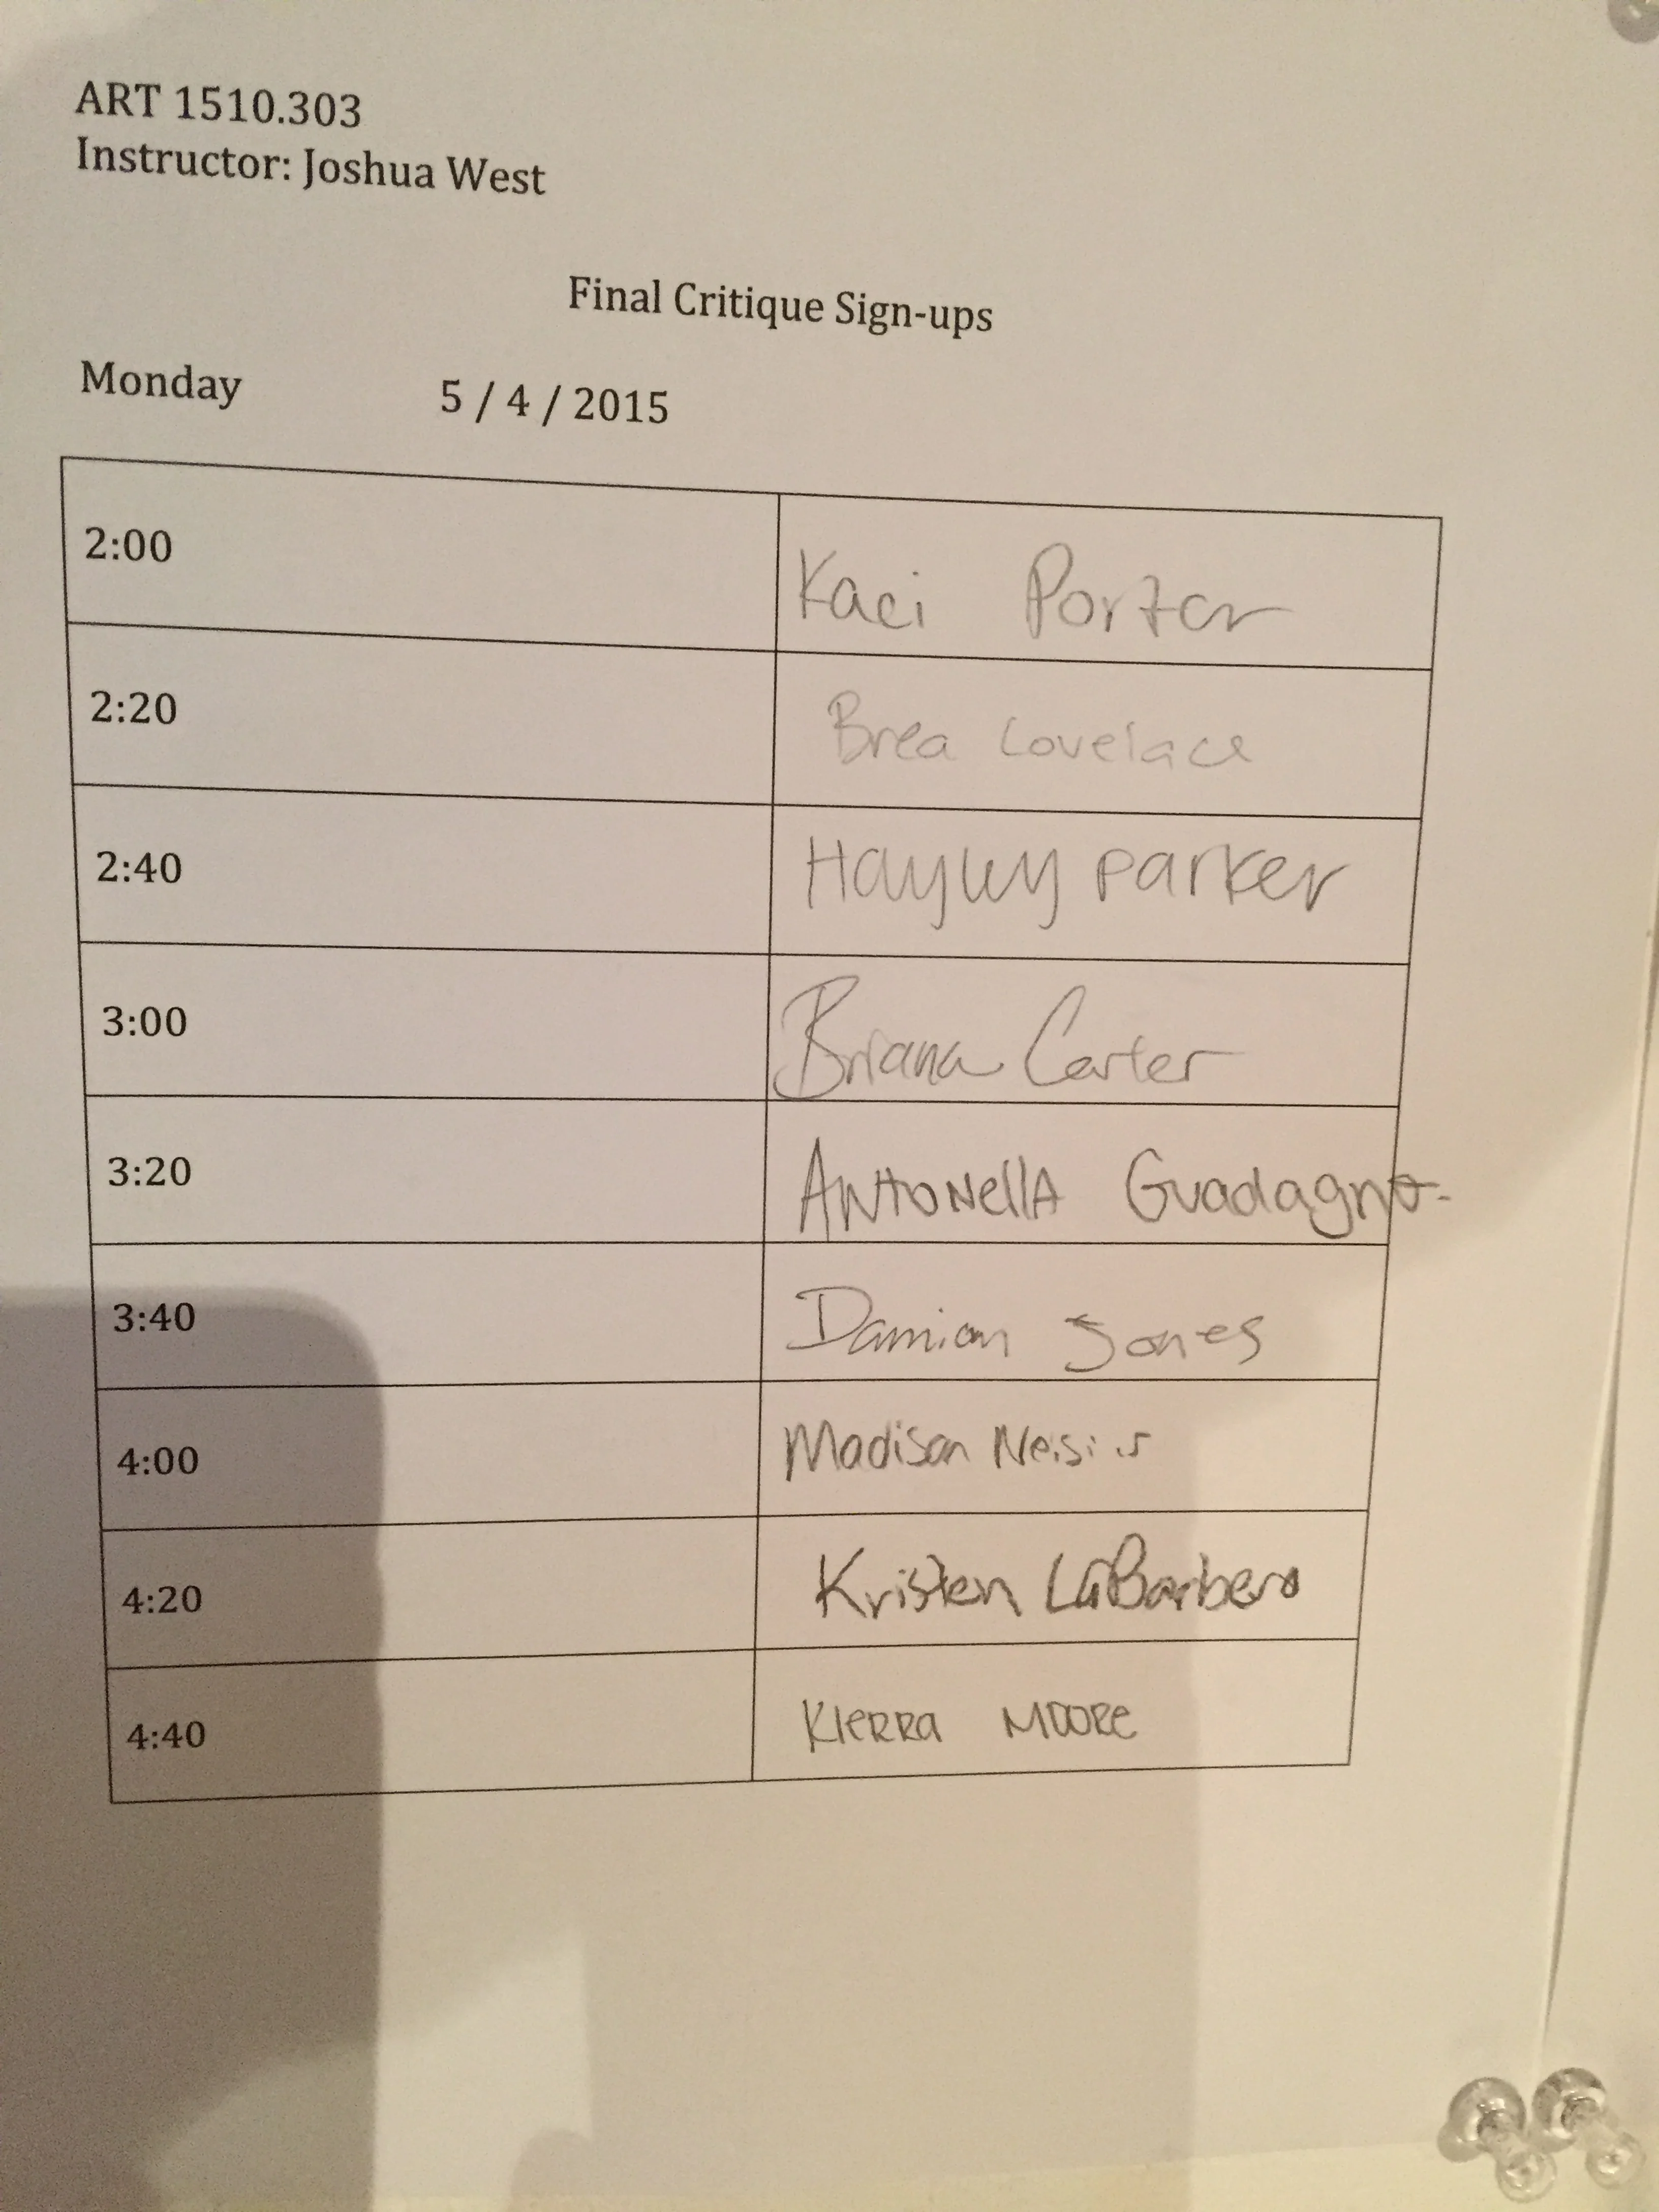 ART 1510.303
Instructor: Joshua West
Final Critique Sign-ups
Monday 5 / 4 / 2015
2:00 Kaci Porter
2:20 Brea Lovelace
2:40 Hayley Parker
3:00 Briana Carter
3:20 Antonella Guadagno
3:40 Damion Jones
4:00 Madison
4:20 Kristen LaBarbera
4:40 Kierra Moore